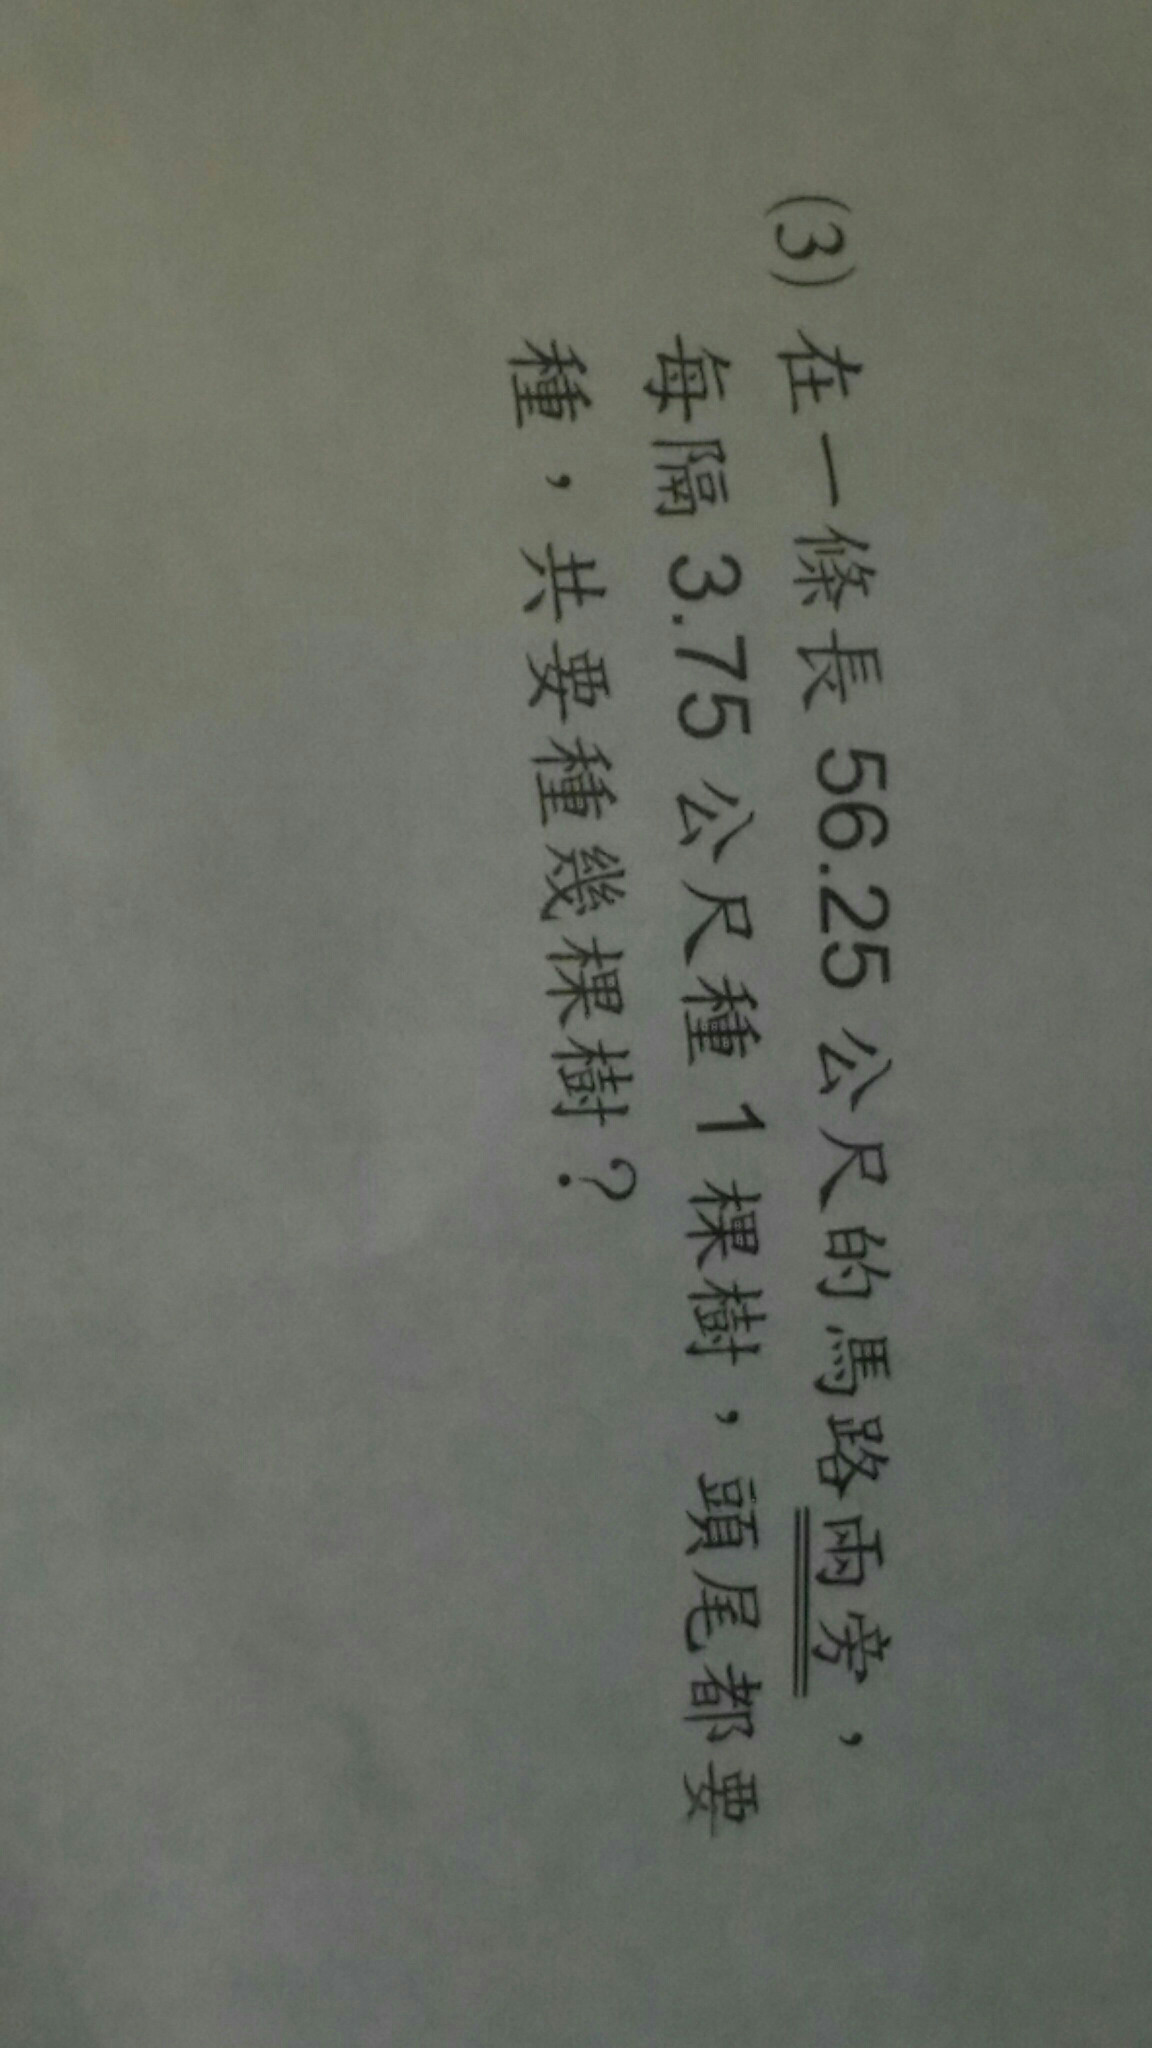 (3) 在一條長 56.25 公尺的馬路兩旁，
每隔 3.75 公尺種 1 棵樹，頭尾都要
種，共要種幾棵樹？